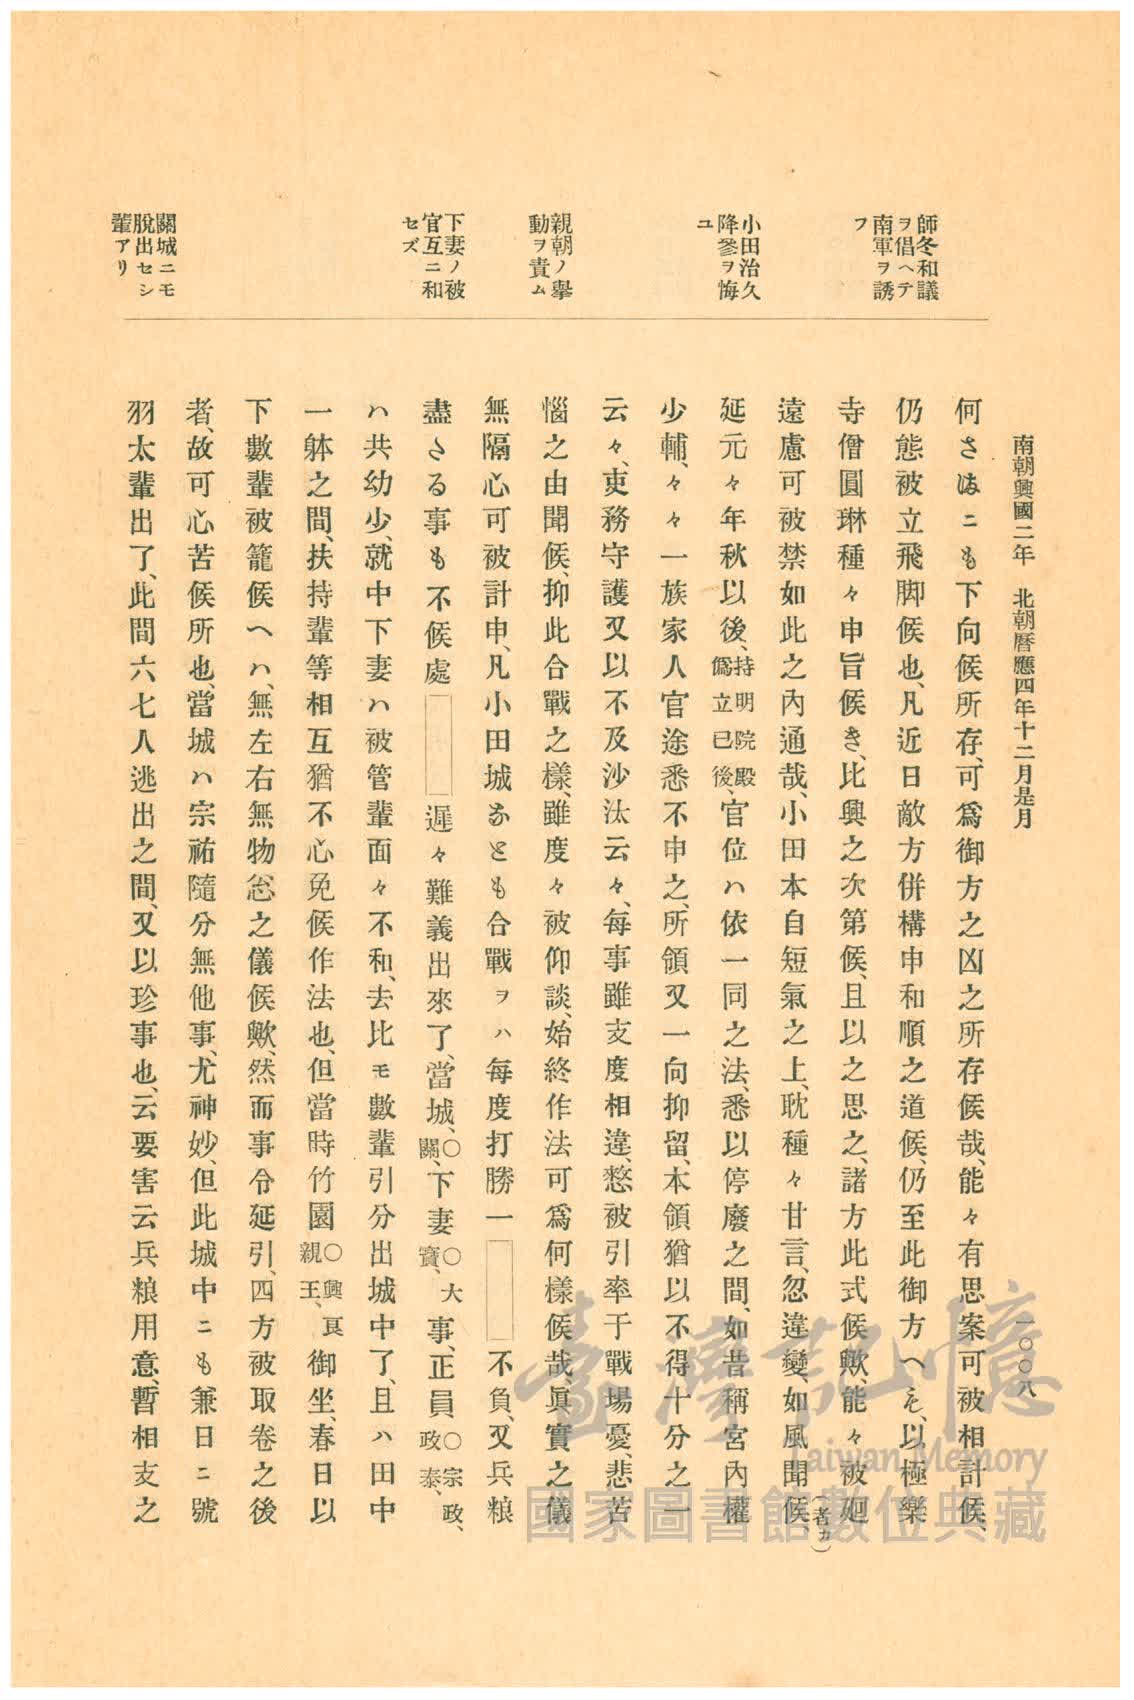 南朝興國二年　北朝曆應四年十二月是月
一〇〇八
師冬和議
ヲ倡ヘテ
南軍ヲ誘
フ
小田治久
降參ヲ悔
ユ
親朝ノ擧
動ヲ責ム
下妻ノ被
官互ニ和
セズ
關城ニモ
脫出セシ
輩アリ
何さはニも下向候所存、可爲御方之凶之所存候哉、能々有思案可被相計候、
仍態被立飛脚候也、凡近日敵方併構申和順之道候、仍至此御方へを、以極樂
寺僧圓琳種々申旨候き、比興之次第候、且以之思之、諸方此式候歟、能々被廻
遠慮可被禁如此之內通哉、小田本自短氣之上、耽種々甘言、忽違變、如風聞候、
（者カ）
延元々年秋以後、持明院殿
僞立已後、官位ハ依一同之法、悉以停廢之間、如昔稱宮內權
少輔、々々一族家人官途悉不申之、所領又一向抑留、本領猶以不得十分之一
云々、吏務守護又以不及沙汰云々、每事雖支度相違、憖被引率于戰場憂、悲苦
惱之由聞候、抑此合戰之樣、雖度々被仰談、始終作法可爲何樣候哉、眞實之儀
無隔心可被計申、凡小田城なとも合戰ヲハ每度打勝一　不負、又兵粮
盡さる事も不候處　遲々難義出來了、當城、〇
關、下妻〇大
寶、事、正員〇宗政、
政泰、
ハ共幼少、就中下妻ハ被管輩面々不和、去比モ數輩引分出城中了、且ハ田中
一躰之間、扶持輩等相互猶不心免候作法也、但當時竹園〇興良
親王、御坐、春日以
下數輩被籠候ヘハ、無左右無物忩之儀候歟、然而事令延引、四方被取卷之後
者、故可心苦候所也、當城ハ宗祐隨分無他事、尤神妙、但此城中ニも兼日ニ號
羽太輩出了、此間六七人逃出之間、又以珍事也、云要害云兵粮用意、暫相支之
臺灣記憶
Taiwan Memory
國家圖書館數位典藏